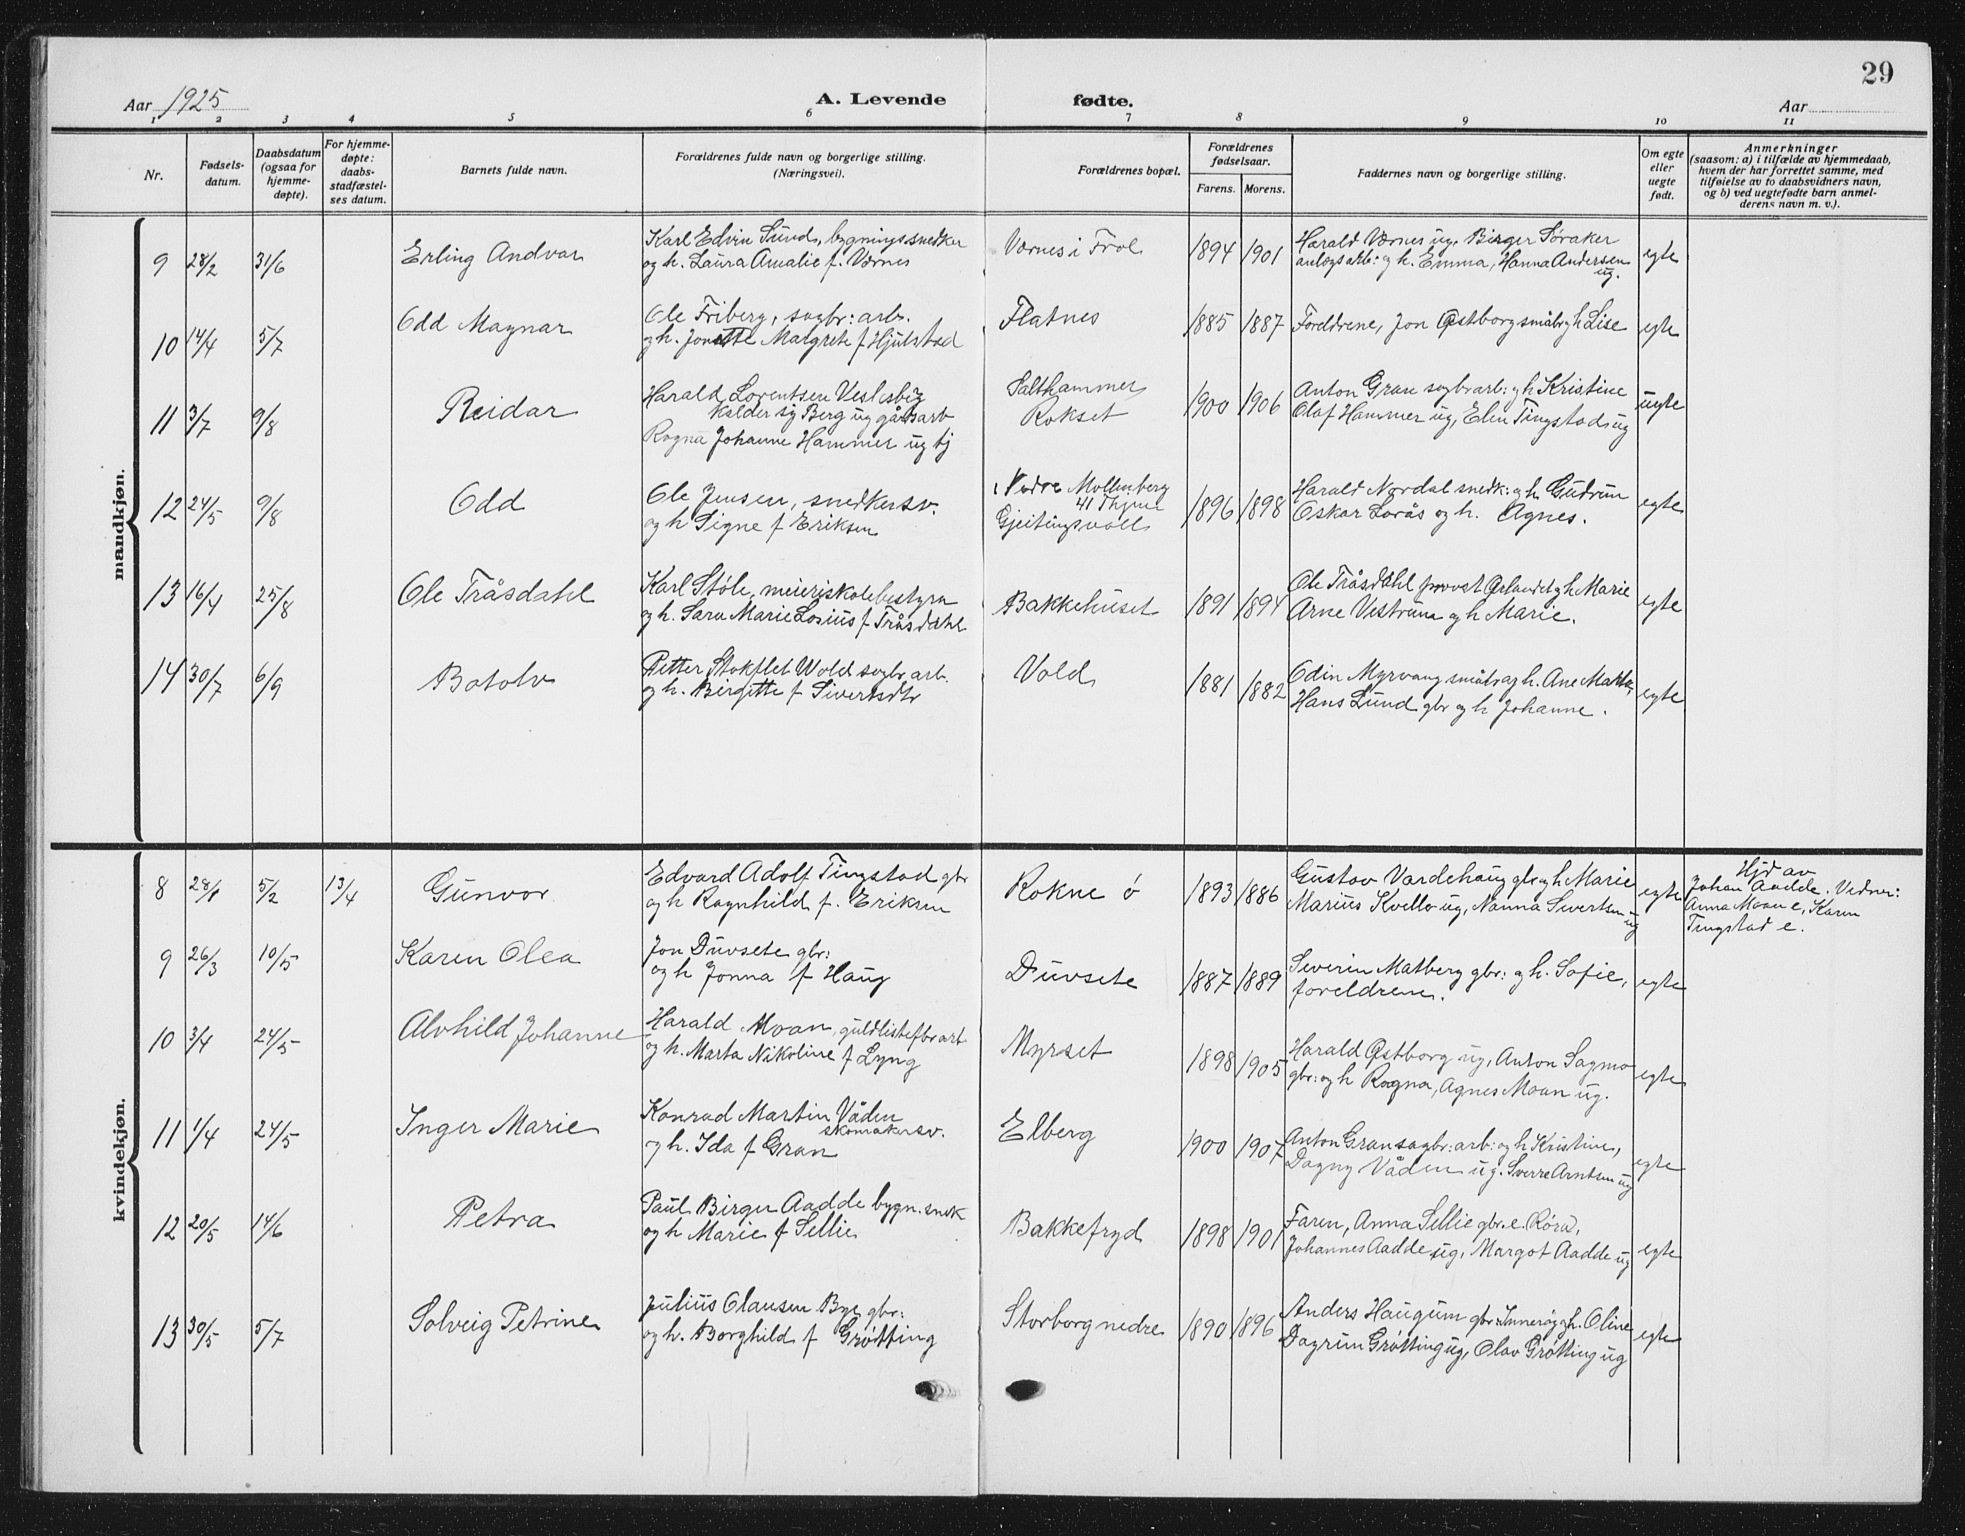 29
Aar 1925
A. Levende
fødte.
Aar
1 2 3 4 5 6 7 8 9 10 11
Nr.
Fødsels-
datum.
Daabsdatum
(ogsaa for
hjemme-
døpte).
For hjemme-
døpte:
daabs-
stadfæstel-
ses datum.
Barnets fulde navn.
Forældrenes fulde navn og borgerlige stilling.
(Næringsvei).
Forældrenes bopæl.
Forældrenes
fødselsaar.
Farens. Morens.
Faddernes navn og borgerlige stilling.
Om egte
eller
uegte
født.
Anmerkninger
(saasom: a) i tilfælde av hjemmedaab,
hvem der har forrettet samme, med
tilføielse av to daabsvidners navn,
og b) ved uegtefødte barn anmel-
derens navn m. v.).
mandkjøn.
9 28/2 31/6 Erling Andvar
Karl Edvin Sund, bygningssnedker
og h. Laura Amalie f. Værnes
Værnes i Frol
1894 1901
Harald Værnes ug. Birger Søraker
anlegsarb: og h. Emma, Hanna Andersen
ug.
egte
10 14/4 5/7 Odd Magnar
Ole Friberg, sagbr: arb.
og h. Jonette Margrete f Hjulstad
Flatnes
1885 1887
Foreldrene, Jon Østborg småbr gh Lise
egte
11 3/7 9/8 Reidar
Harald Lorentsen Veslesbig
kalder sig Berg ug gårdsarb
Ragna Johanne Hammer ug tj
Salthammer
Rokset
1900 1906
Anton Gran sagbr arb: gh Kristine
Olaf Hammer ug, Elin Tingstad ug
uegte
12 24/5 9/8 Odd
Ole Jensen, snedkersv.
og h Signe f Eriksen
Nedre Mollenberg
41 Thjem
Gjeitingsvoll
1896 1898
Harald Nordal snedk: og h Gudrun
Oskar Lorås og h. Agnes.
egte
13 16/4 25/8 Ole Tråsdahl
Karl Støle, meieriskolebestyrer
og h. Sara Marie Losius f Tråsdahl
Bakkehuset
1891 1894
Ole Tråsdahl provst Ørlandet gh Marie
Arne Vestrum og h Marie.
egte
14 30/7 6/9 Botolv
Petter Stokflet Wold sagbr arb.
og h. Birgitte f Sivertsdtr
Vold
1881 1882
Odin Myrvang småbr og h. Ane Marta,
Hans Lund gbr og h Johanne.
egte
kvindekjøn.
8 28/1 5/2 13/4 Gunvor
Edvard Adolf Tingstad gbr
og h Ragnhild f. Eriksen
Rokne ø
1893 1886
Gustav Vardehaug gbr og h Marie
Marius Kvello ug, Nanna Sivertsen ug
egte
Hjd av
Johan Aadde. Vidner:
Anna Moan e, Karen
Tingstad e.
9 26/3 10/5 Karen Olea
Jon Duvsete gbr:
og h Jonna f Haug
Duvsete
1887 1889
Severin Matberg gbr: og h. Sofie,
foreldrene.
egte
10 3/4 24/5 Alvhild Johanne
Harald Moan, guldlistefbr arb
og h. Marta Nikoline f Lyng
Myrset
1898 1905
Harald Østborg ug, Anton Sagmo
gbr: og h Ragna, Agnes Moan ug.
egte
11 1/4 24/5 Inger Marie
Konrad Martin Våden
skomakersv.
og h. Ida f Gran
Elberg
1900 1907
Anton Gran sagbr: arb: og h Kristine,
Dagny Våden ug. Sverre Arntsen ug
egte
12 20/5 14/6 Petra
Paul Birger Aadde bygn. snek
og h Marie f Sellie
Bakkefryd
1898 1901
Faren, Anna Sellie gbr. e. Røra,
Johannes Aadde ug, Margot Aadde ug
egte
13 30/5 5/7 Solveig Petrine
Julius Olausen Bye gbr:
og h. Borghild f Grøtting
Storborg nedre
1890 1896
Anders Haugum gbr Inderøy gh. Oline
Dagrun Grøtting ug, Olav Grøtting ug
egte